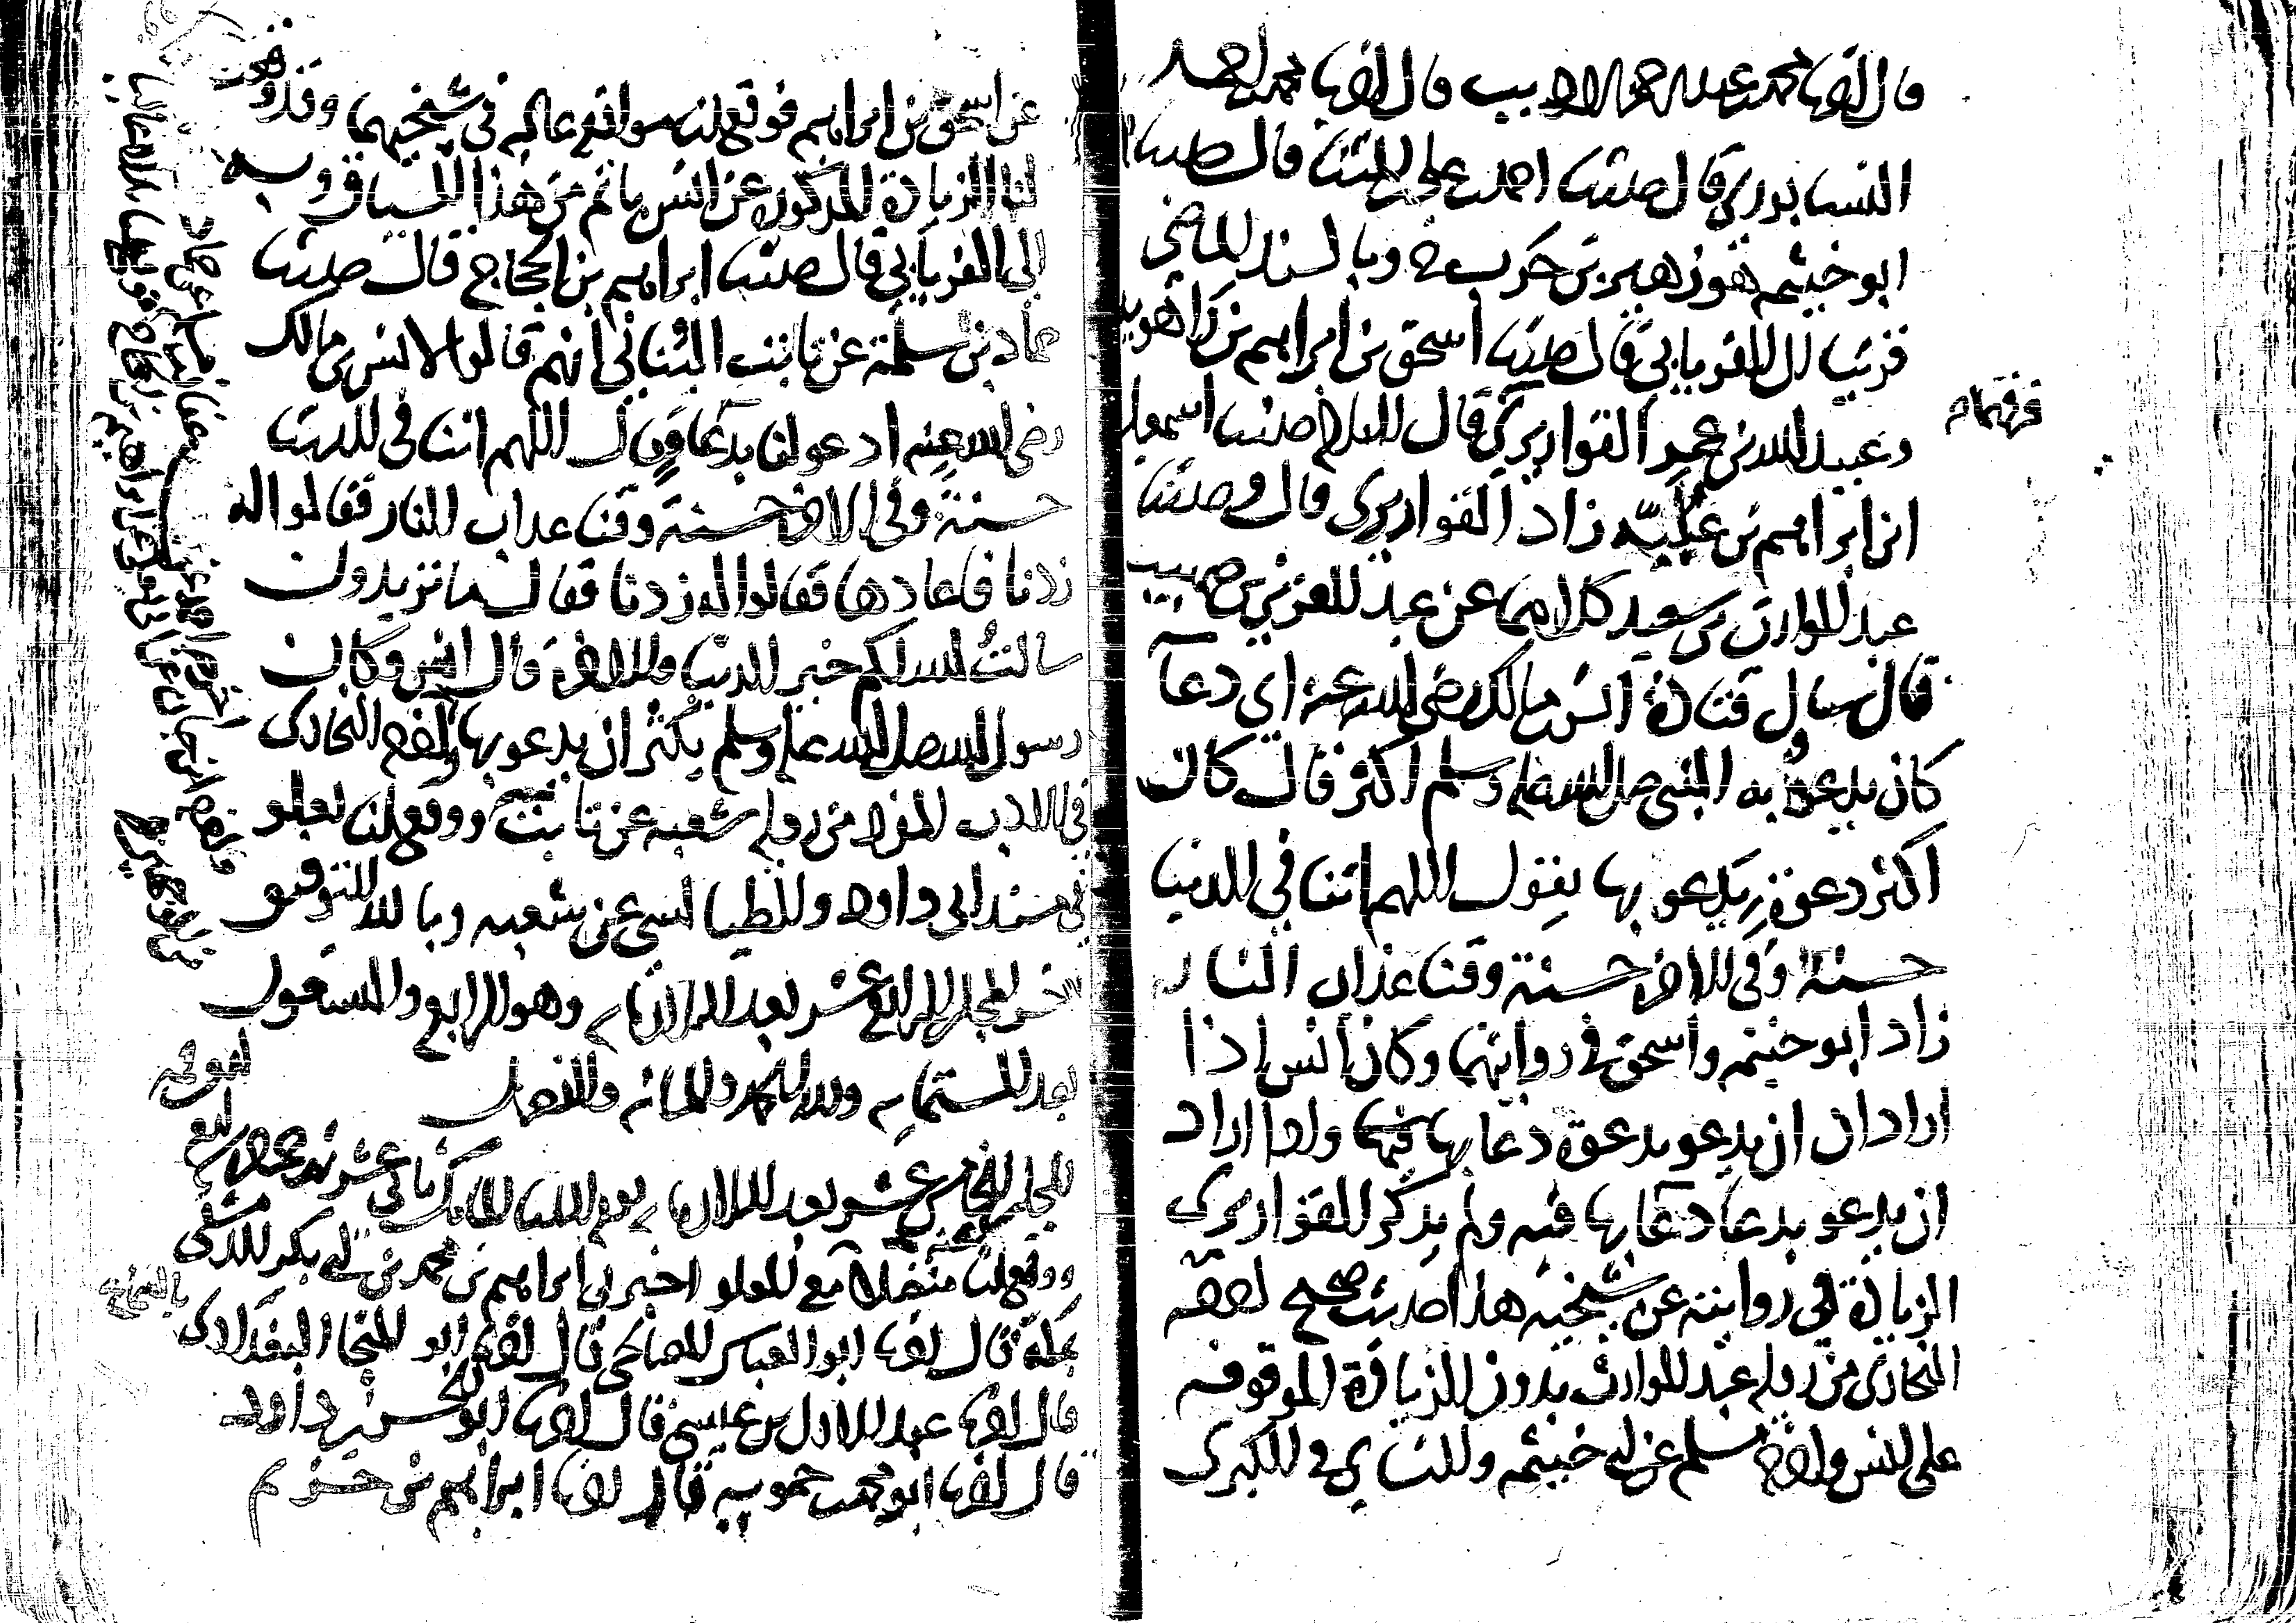 قال انا محمد بن عبد الرحمن الاديب قال انا محمد بن احمد
النيسابوري قال حدثنا احمد بن علي بن المثنى قال حدثنا
ابو خيثمة هو زهير بن حرب ح وبالسند الماضي
قريبا الى الفريابي قال حدثنا اسحق بن ابراهيم بن راهويه
وعبيد الله بن عمر القواريري قال الاول حدثنا اسمعيل
ابن ابراهيم بن علية زاد القواريري قال وحدثنا
عبد الوارث بن سعيد كلاهما عن عبد العزيز بن صهيب
قال سال قتادة انس بن مالك رضي الله عنه اي دعاء
كان يدعو به النبي صلى الله عليه وسلم اكثر قال كان
اكثر دعوة يدعو بها يقول اللهم اتنا في الدنيا
حسنة وفي الاخرة حسنة وقنا عذاب النار
زاد ابو خيثمة واسحق في روايتهما وكان انس اذا
اراد ان يدعو بدعوة دعا بها فيها واذا اراد
ان يدعو بدعا دعا بها فيه ولم يذكر القواريري
الزيادة في روايته عن شيخيه هذا حديث صحيح اخرجه
البخاري من رواية عبد الوارث بدون الزيادة الموقوفة
على انس واخرجه مسلم عن ابي خيثمة والنسائي في الكبرى
عن اسحق بن ابراهيم فوقع لنا موافقة عالية في شيخيهما وقد وقعت
لنا الزيادة المذكورة عن انس باتم من هذا السياق وبه
الى الفريابي قال حدثنا ابراهيم بن الحجاج قال حدثنا
حماد بن سلمة عن ثابت البناني انهم قالوا لانس بن مالك
رضي الله عنه ادعو لنا بدعا فقال اللهم اتنا في الدنيا
حسنة وفي الاخرة حسنة وقنا عذاب النار فقالوا له
زدنا فاعادها فقالوا له زدنا فقال ما تزيدون
سالت الله لكم خير الدنيا والاخرة قال انس وكان
رسول الله صلى الله عليه وسلم يكثر ان يدعو بها واخرجه البخاري
في الادب المفرد من رواية شعبة عن ثابت ووقع لنا بعلو
في مسند ابي داود الطيالسي عن شعبة وبالله التوفيق
اخر المجلس الرابع عشر بعد الثلاثماية وهو الرابع والتسعون
بعد الستماية ولله الحمد والمنة والفضل
المجلس الخامس عشر بعد الثلاثماية يوم الثلثا المبارك ثاني عشر
ووقع لنا متصلا مع العلو اخبرني ابراهيم بن محمد بن ابي بكر الدمشقي
بمكة قال انا ابو العباس الصالحي قال انا ابو المنجا البغدادي
قال انا عبد الاول بن عيسى قال انا ابو الحسن بن داود
قال انا ابو محمد بن حمويه قال انا ابراهيم بن خزيم